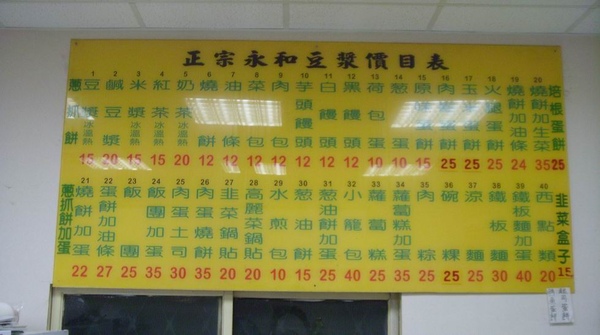 正宗永和豆漿價目表
蔥抓餅
1 豆漿 冰溫熱 15
2 鹹豆漿 20
3 米漿 冰溫熱 15
4 紅茶 冰溫熱 15
5 奶茶 冰溫熱 20
6 燒餅 12
7 油條 12
8 菜包 12
9 肉包 12
10 芋頭饅頭 12
11 白饅頭 12
12 黑饅頭 12
13 荷包蛋 10
14 蔥蛋 10
15 原 餅 15
16 肉 餅 25
17 玉米蛋餅 25
18 火腿蛋餅 25
19 燒餅加油條 24
20 燒餅加生菜 35
培根蛋餅 25
蔥抓餅加蛋
21 燒餅加蛋 22
22 蛋餅加油條 27
23 飯團 25
24 飯團加蛋 35
25 肉蛋土司 30
26 肉燒餅 25
27 韭菜鍋貼 20
28 高麗菜鍋貼 20
29 水煎包 10
30 蔥油餅 15
31 蔥油餅加蛋 25
32 小籠包 40
33 蘿蔔糕 25
34 蘿蔔糕加蛋 35
35 肉粽 25
36 碗粿 25
37 涼麵 30
38 鐵板麵 30
39 鐵板麵加蛋 40
40 西點類 20
韭菜盒子 15